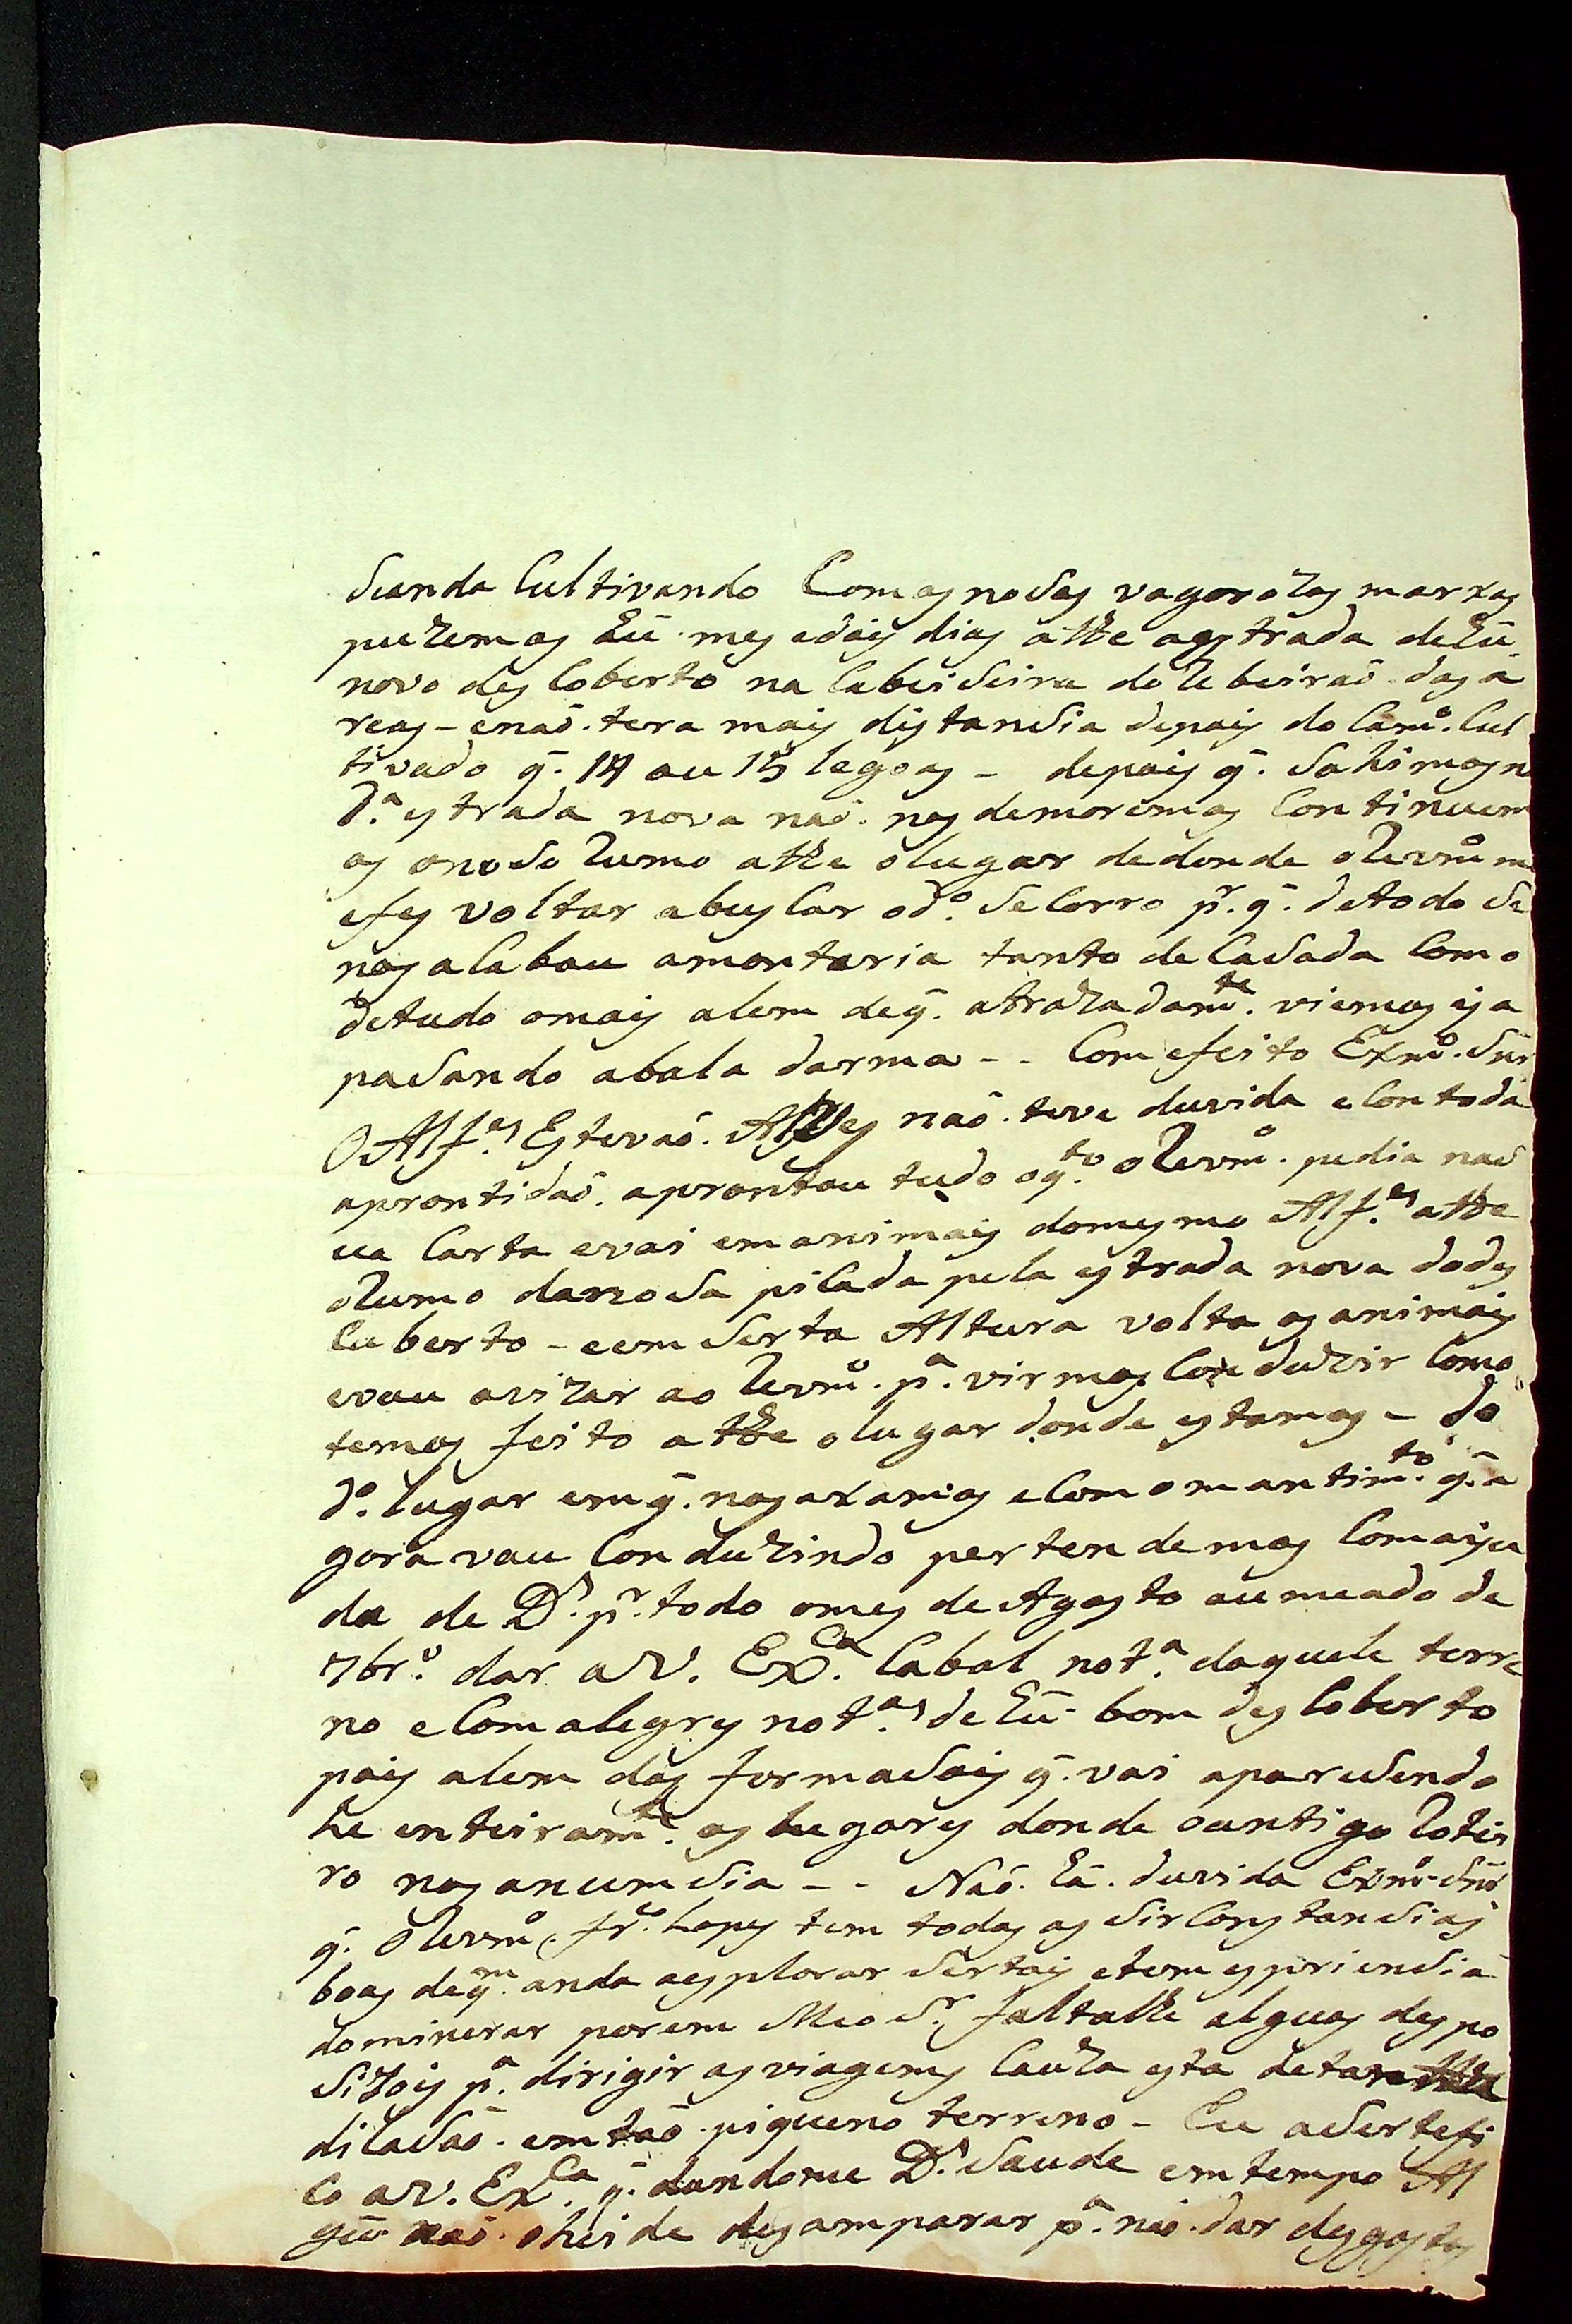 sianda Cultivando Com as nosas vagorozas marxas
puzemos hũ mes edois dias athe aestrada dehũ
novo des Coberto na Cabeiseira do Rebeiraõ das a
reas - enaõ tera mais distansia depois do Camº. Cul
tivado q̃. 14 ou 15 legoas - depois q̃. Sahimos n
dª estrada nova naõ nos demoremos Continuem
os onoso Rumo athe olugar dedonde oRevmº m
efes voltar abusCar odº. SeCorro pr. q̃. detodo se
nos aCabou amontaria tanto de Casada Como
detudo omais alem deq̃. atrazadamte. viemos ja
pasando abala darma - - Com efeito Exmº. Snr
O Alfes Estevaõ. Alves naõ. teve duvida eContoda
aprontidaõ. aprontou tudo oqto. oRevmº. pedia nas
ua Carta evai emanimais domesmo Alfes athe
oRumo darrosa piCada pela estrada nova dodes
Cuberto - eem Serta Altura volta os animais
evou avizar ao Revmº. pª. virmos Conduzir Como
temos feito athe olugar donde estamos - do
dº. lugar emq̃. nos axamos eComomantimto. q̃. a
gora vou Conduzindo pertendemos Comaiju
da de Ds. pr. todo omes de Agosto oumeado de
7brº. dar aV. Exca. Cabal notª. daquele terre
no eComalegres notas. de hũ bom des Coberto
pois alem das formasois q̃. vai aparesendo
he enteiramte. os lugares donde oantigo Rotei
ro nos anumsia - - Naõ. há. duvida Exmº. Snr
q̃. oRevmº. frº. Lopes tem todas as SirConstansias
boas deqm. anda aesplorar Sertois etem espriensia
dominerar porem Meo Sr. faltalhe alguas despo
Sizois pª. dirigir as viagems Cauza esta detan
dilasaõ. em taõ piqueno terreno - Eu aSertefi
Co aV. Exca. q̃. dandome Ds. Saude emtempo Al
gũ naõ. ohei de desamparar pª. naõ. dar desgostos